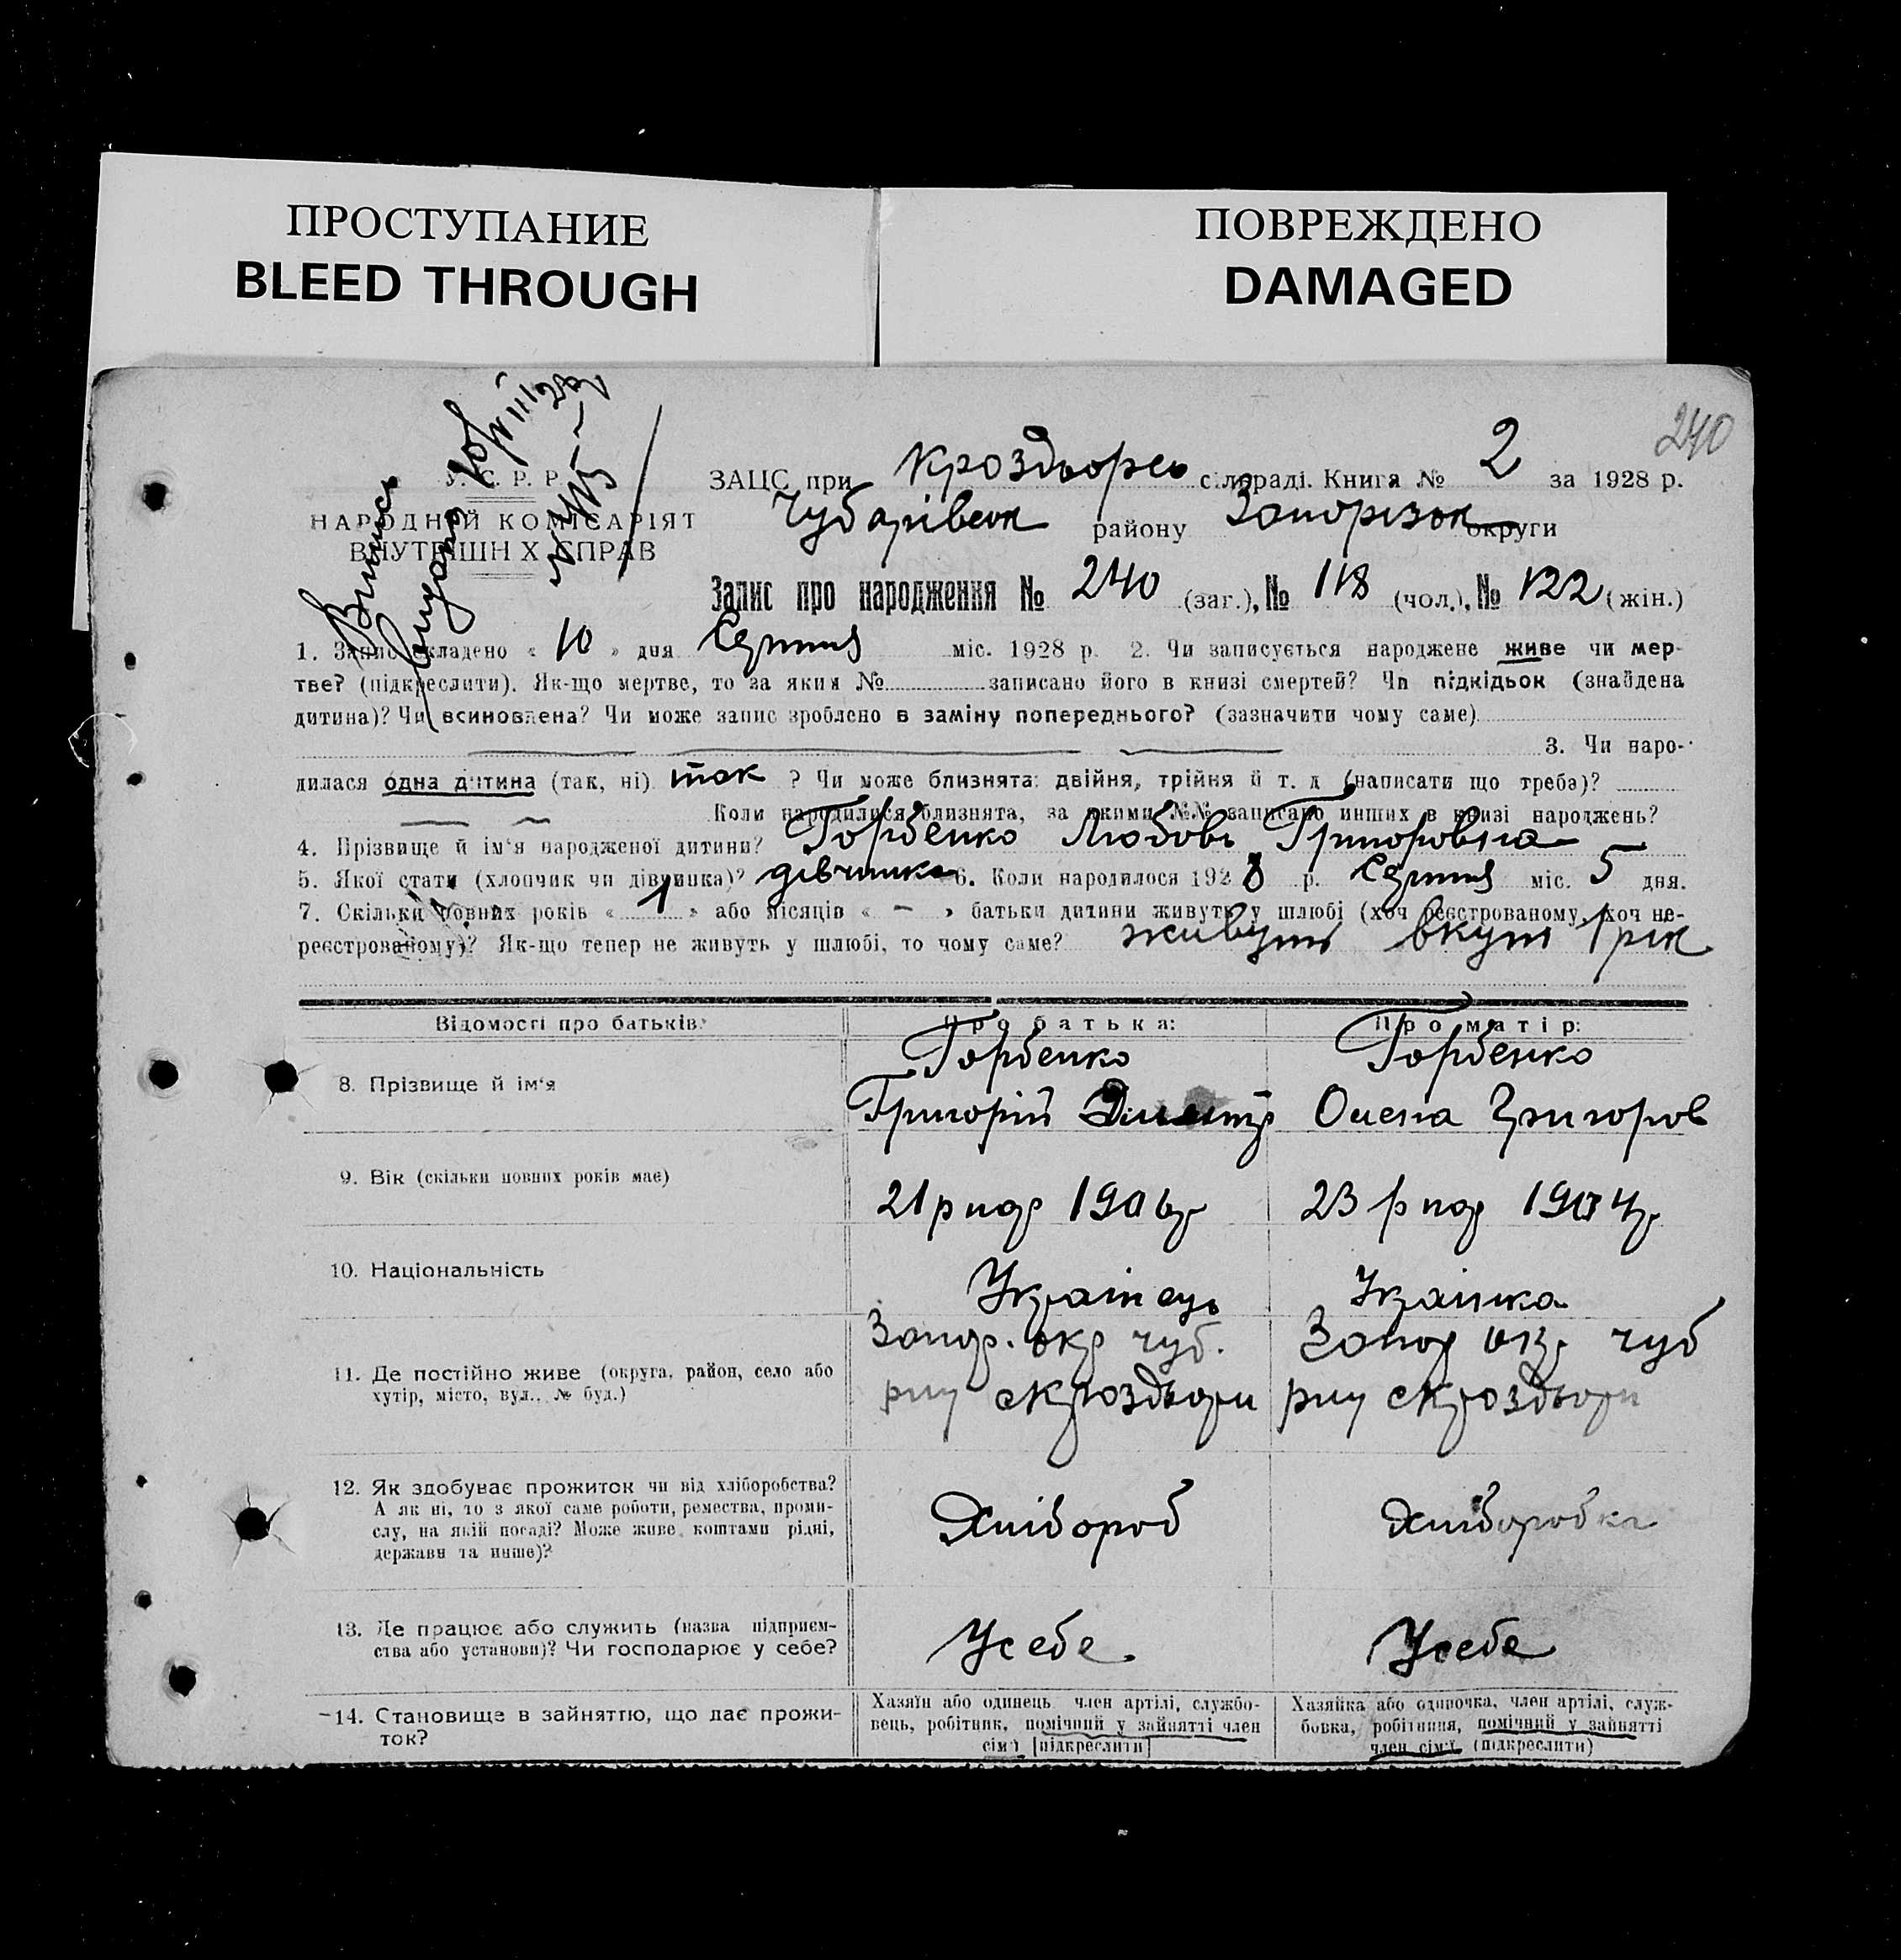 ПРОСТУПАНИЕ
BLEED THROUGH
ПОВРЕЖДЕНО
DAMAGED
240
У. С. Р. Р.
НАРОДНИЙ КОМІСАРІЯТ
ВНУТРІШНІХ СПРАВ
Випись
видано
ЗАЦС при Кроздворсь сільраді. Книга № 2 за 1928 р.
Чубарівськ району Запорізьк округи
Запис про народження № 240 (заг.), № 118 (чол.), № 122 (жін.)
1. Запис складено « 10 » дня Серпня міс. 1928 р. 2. Чи записується народжене живе чи мер-
тве? (підкреслити). Як-що мертве, то за яким № записано його в книзі смертей? Чи підкідьок (знайдена
дитина)? Чи всиновлена? Чи може запис зроблено в заміну попереднього? (зазначити чому саме)
3. Чи наро-
дилася одна дитина (так, ні) так ? Чи може близнята: двійня, трійня й т. д. (написати що треба)?
Коли народилися близнята, за якими №№ записано инших в книзі народжень?
4. Прізвище й ім'я народженої дитини? Горбенко Любовь Григоровна
5. Якої статі (хлопчик чи дівчинка)? дівчинка 6. Коли народилося 1928 р. Серпня міс. 5 дня.
7. Скільки повних років « 1 » або місяців « – » батьки дитини живуть у шлюбі (хоч реєстрованому, хоч не-
реєстрованому)? Як-що тепер не живуть у шлюбі, то чому саме? живуть вкупі 1 рік
Відомості про батьків:
Про батька:
Про матір:
8. Прізвище й ім'я
Горбенко
Григорій Дмитр
Горбенко
Олена Григоров
9. Вік (скільки повних років має)
21 р нар 1906 р
23 р нар 1904 р
10. Національність
Українець
Українка
11. Де постійно живе (округа, район, село або
хутір, місто, вул., № буд.)
Запор. окр чуб.
рну с Кроздвори
Запор окр чуб
рну с Кроздвори
12. Як здобуває прожиток чи від хліборобства?
А як ні, то з якої саме роботи, ремества, проми-
слу, на якій посаді? Може живе коштами рідні,
держави та инше)?
Хлібороб
Хлiборобка
13. Де працює або служить (назва підприєм-
ства або установи)? Чи господарює у себе?
У себе
У себе
14. Становище в зайняттю, що дає прожи-
ток?
Хазяїн або одинець член артілі, службо-
вець, робітник, помічний у зайнятті член
сім'ї [підкреслити]
Хазяйка або одиночка, член артілі, служ-
бовка, робітниця, помічний у зайнятті
член сім'ї (підкреслити)